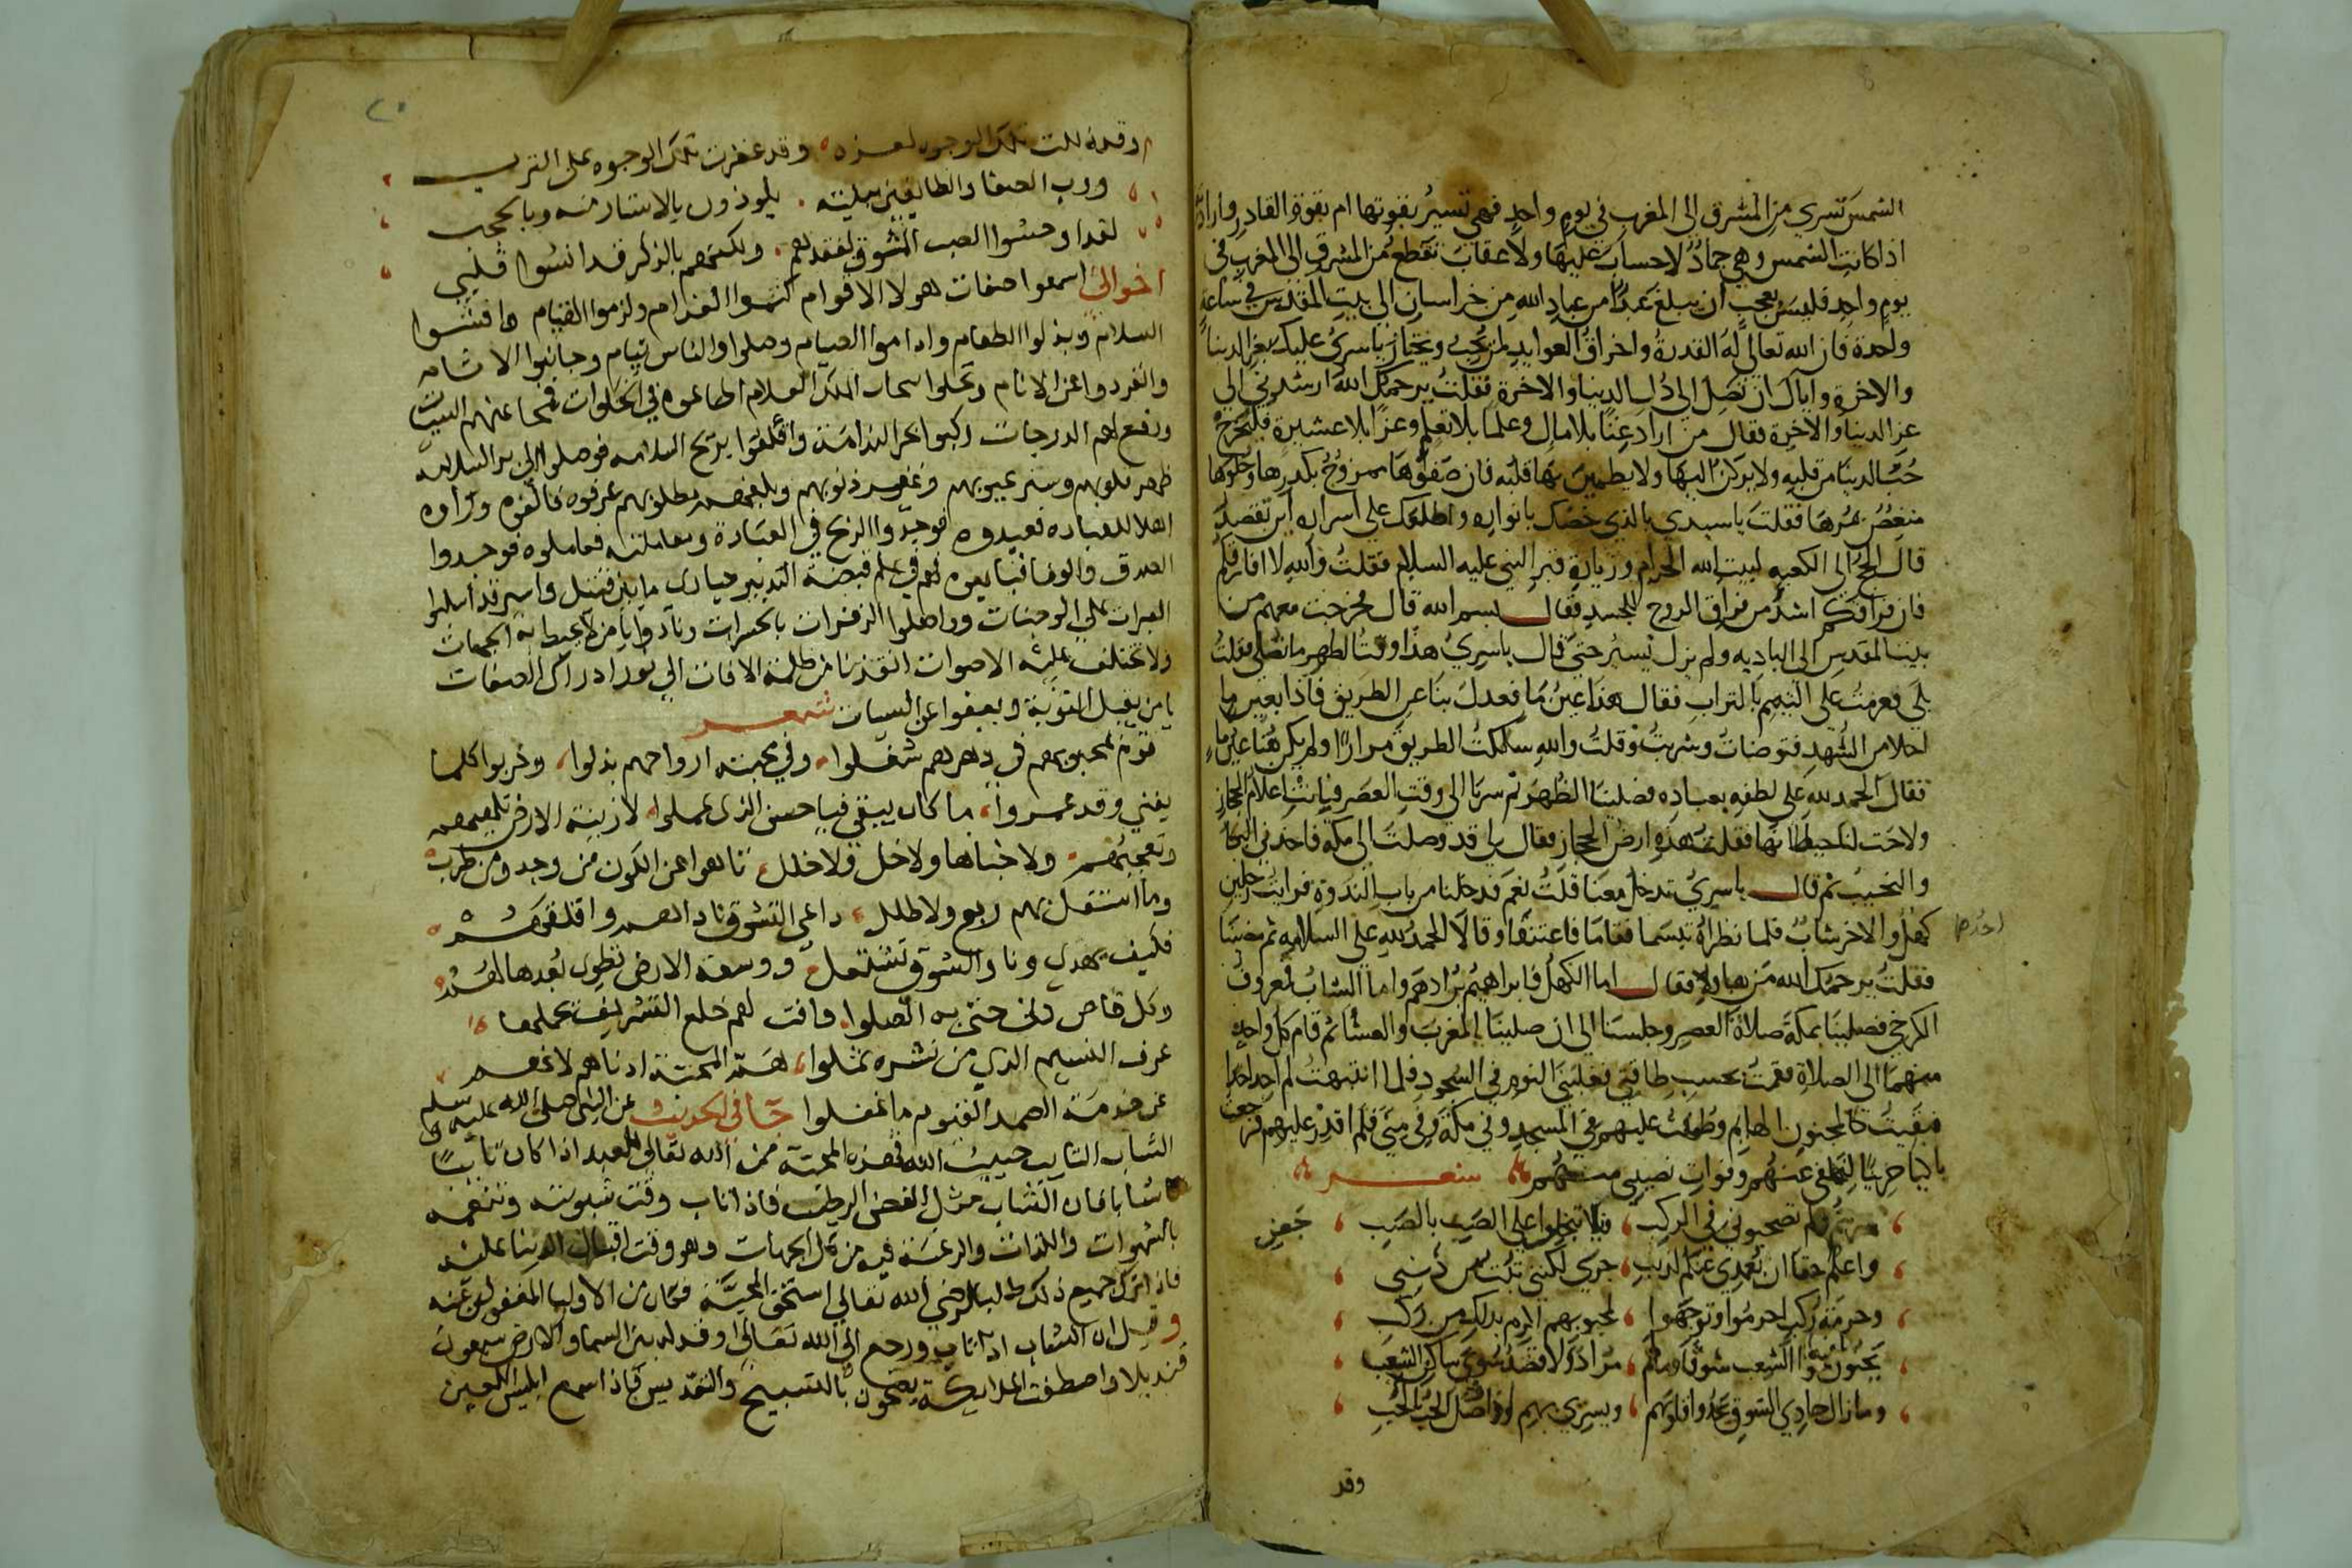 الشمس تسري من المشرق الى المغرب في يوم واحد فهي تسير بقوتها ام بقوة القادر وارادته
اذا كانت الشمس وهي جماد لا حساب عليها ولا عقاب تقطع من المشرق الى المغرب في
يوم واحد فليس بعجب ان يبلغ عبدا من عباد الله من خراسان الى بيت المقدس في ساعة
واحدة فان الله تعالى له القدرة واخراق العوايد لمن يحب ويختار يا سري عليك بعز الدنيا
والاخرة واياك ان تصل الى ذل الدنيا والاخرة فقلت يرحمك الله ارشدني الى
عز الدنيا والاخرة فقال من اراد غنا بلا مال وعلما بلا تعلم وعزا بلا عشيرة فليخرج
حب الدنيا من قلبه ولا يركن اليها ولا يطمين بها قلبه فان صفوها ممزوج بكدرها وحلوها
منغص بمرها فقلت يا سيدي بالذي خصك بانواره واطلعك على اسراره اين تقصد
قال الحج الى الكعبه لبيت الله الحرام وزيارة قبر النبي عليه السلام فقلت والله لا افارقكم
فان فراقكم اشد من فراق الروح للجسد فقال بسم الله قال فخرجت معهم من
بيت المقدس الى الباديه ولم نزل نسير حتى قال يا سري هذا وقت الظهر ما تصلي فقلت
بلى فعزمت على التيمم بالتراب فقال هذا عين ما فعدل بنا عن الطريق فاذا بعين ما
احلا من الشهد فتوضات وشربت وقلت والله سلكت الطريق مرارا ولم يكن هنا عين ماء
فقال الحمد لله على لطفه بعباده فصلينا الظهر ثم سرنا الى وقت العصر فبانت اعلام الحجاز
ولاحت لنا حيطانها فقلت هذه ارض الحجاز فقال لي قد وصلت الى مكة فاخذني البكا
والنحيب ثم قال يا سري تدخل معنا قلت نعم فدخلنا من باب الندوة فرايت رجلين
احدهما
كهل والاخر شاب فلما نظراه تبسما فقاما فاعتنقا وقالا الحمد لله على السلامه ثم
فقلت يرحمك الله من هاولا فقال اما الكهل فابراهيم بن ادهم واما الشاب فمعروف
الكرخي فصلينا بمكة صلاة العصر وجلسنا الى ان صلينا المغرب والعشا ثم قام كل واحد
منهما الى الصلاة فقمت بحسب طاقتي فغلبني النوم في السجود فلما انتبهت لم اجد احدا
فبقيت كالمجنون الهايم وطفت عليهم في المسجد وفي مكة وفي منى فلم اقدر عليهم فرجعت
باكيا حزينا لتخلفي عنهم وفوات نصيبي منهم شعر
فلم تصحبوني في الركب فلا تبخلوا على الصب بالصب
واعلم حقا ان بعدي عنكم لذنب جرى لكنني تبت من ذنبي
وحرمة ركب احرموا وتوجهوا لمحبوبهم اكرم بذلك من ركب
الشعب شوقا ومالهم مرادا ولا قصد سوى ساكن الشعب
وما زال حادي الشوق يحدوا قلوبهم ويسري بهم لو واصل الحب للحب
وقد
٢٠
وقد ذللت تلك الوجوه لعزه وقد عفرت تلك الوجوه على الترب
ورب الصفا والطايفين ببيته يلوذون بالاستار منه وبالحجب
لقد اوحشوا الصب المشوق لفقدهم ولكنهم بالذكر قد انسوا قلبي
اخواني اسمعوا صفات هولا الاقوام كتموا الغرام ولزموا القيام وافشوا
السلام وبذلوا الطعام واداموا الصيام وصلوا والناس نيام وجانبوا الاثام
وانفردوا عن الانام الملك العلام اطاعوه في الخلوات فمحا عنهم السيئات
ورفع لهم الدرجات ركبوا بحر الندامة واقلعوا بريح السلامه فوصلوا الى بر السلامه
طهر قلوبهم وستر عيوبهم وغفر ذنوبهم وبلغهم مطلوبهم عرفوه فالفوه وراوه
اهلا للعباده فعبدوه فوجدوا الربح في العبادة ومعاملته فعاملوه فوجدوا
الصدق والوفا فبايعوه لهم في علم قبضة التدبير حيارى ما بين قتيل واسير قد اسبلوا
العبرات على الوجنات وواصلوا الزفرات بالحسرات ونادوا يا من لا تحيط به الجهات
ولا تختلف عليه الاصوات انقذنا من ظلمة الافات الى نور ادراك الصفات
يا من يقبل التوبة ويعفوا عن السيات شعر
قوم لمحبوبهم في دهرهم شغلوا وفي محبته ارواحهم بذلوا وخربوا كلما
يفني وقد عمروا ما كان يبقى فيا حسن الذي عملوا لا زينة الارض تلهيهم
وتعجبهم ولا جناها ولا خل ولا خلل تاهوا عن الكون من وجد ومن طرب
وما استقل بهم ربع ولا طلل داعي التشوق ناداهم واقلقهم
فكيف يهدي ونار الشوق تشتعل ووسعة الارض تطوى بعدها لهم
وكل قاص دنى حتى به اتصلوا وافت لهم خلع التشريف يحملها
عرف النسيم الذي من نشره ثملوا هم المحبة ادناهم لانهم
عن خدمة الصمد القيوم ما غفلوا جا في الحديث عن النبي صلى الله عليه وسلم
الشاب التايب حبيب الله فهذه المحبة من الله تعالى للعبد اذا كان تايبا
شابا فان الشاب مثل الغصن الرطب فاذا تاب وقت شبوبته وتنعمه
بالشهوات واللذات والرغبة فيه من كل الجهات وهو وقت اقبال الدنيا عليه
فاذا ترك جميع ذلك طالبا لرضى الله تعالى استحق المحبة فكان من الاوليا المغفور عنه
وقيل ان الشاب اذا تاب ورجع الى الله تعالى اوقد له بين السما والارض سبعون
قنديلا واصطفت الملايكة يضجون بالتسبيح والتقديس فاذا سمع ابليس اللعين